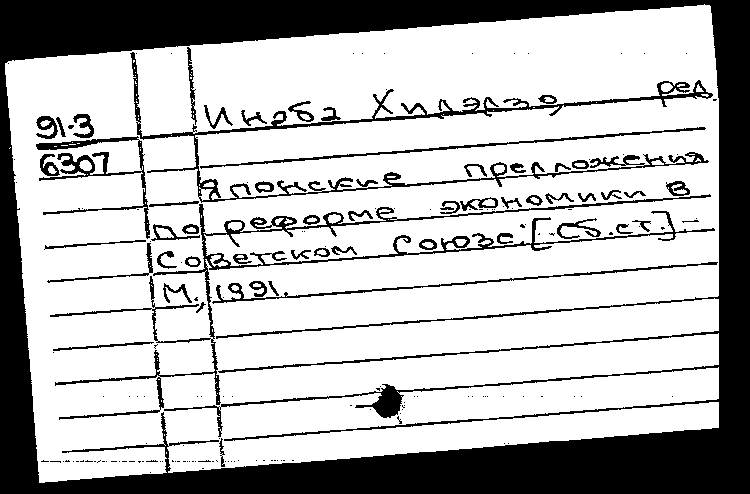 91-3 Инаба Хидэдзо, ред.
6307
Японские предложения
по реформе экономики в
Советском Союзе: [Сб. ст.] –
М., 1991.